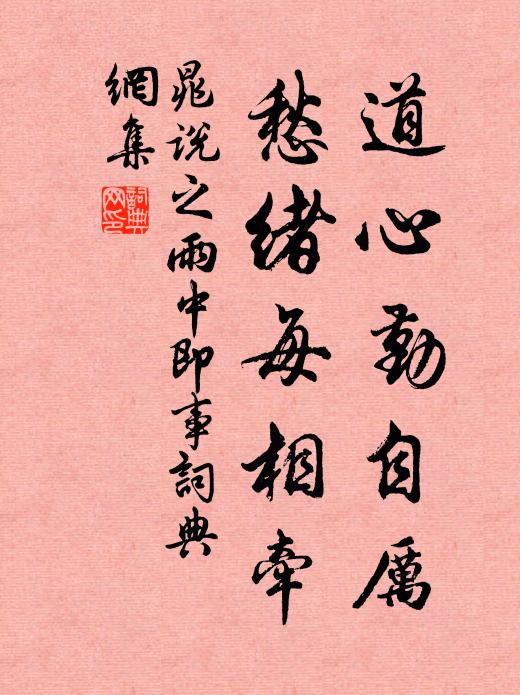 道心勤自厲
愁緒每相牽
晁說之雨中即事詞典
網集
詞典網印